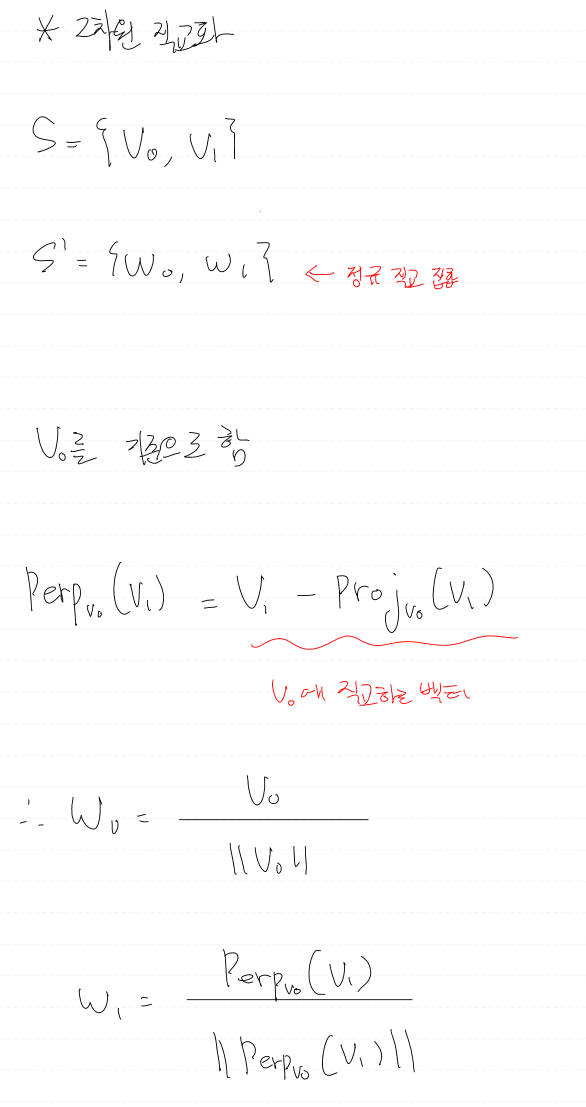 * 2차원 직교화
S = {V₀, V₁}
S' = {W₀, W₁} ← 정규 직교 집합
V₀를 기준으로 함
Perp_V₀(V₁) = V₁ - Proj_V₀(V₁)
V₀에 직교하는 벡터
∴ W₀ = V₀ / ||V₀||
W₁ = Perp_V₀(V₁) / ||Perp_V₀(V₁)||